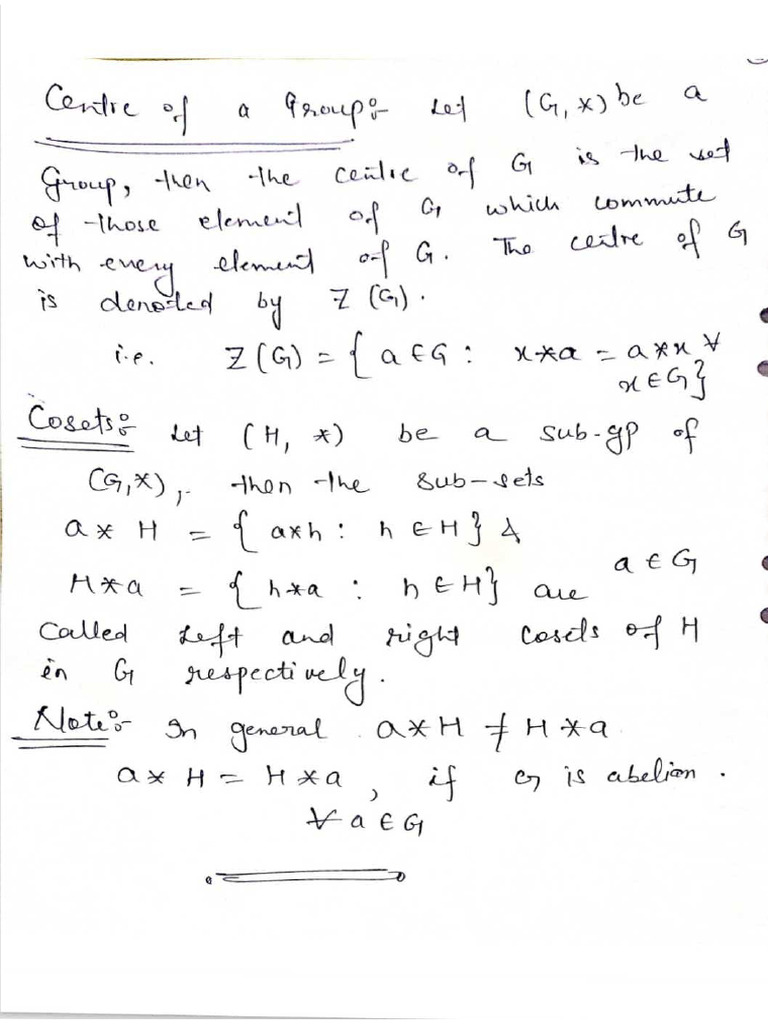 Centre of a Group:- Let (G, *) be a
Group, then the centre of G is the set
of those element of G which commute
with every element of G. The centre of G
is denoted by Z (G).
i.e. Z(G) = { a ∈ G : x*a = a*x ∀
x ∈ G}
Cosets:- Let (H, *) be a sub-gp of
(G,*), then the sub-sets
a * H = { a*h : h ∈ H} &
a ∈ G
H*a = { h*a : h ∈ H} are
Called Left and right cosets of H
in G respectively.
Note:- In general a*H ≠ H*a
a* H = H*a , if G is abelian.
∀ a ∈ G